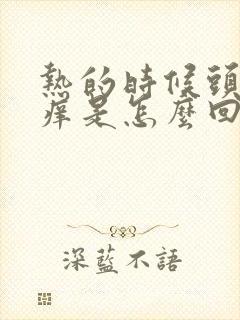 熱的時候頭
痒是怎麼回
深藍不語